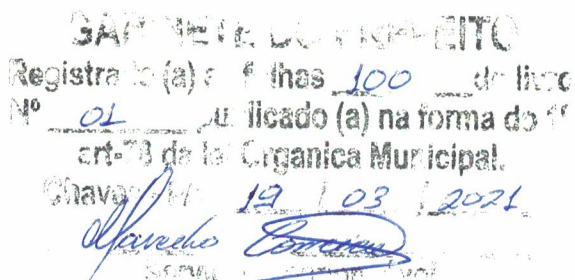 GABINETE DO PREFEITO
Registrado (a) a folhas 100 do livro
Nº 01 publicado (a) na forma do
art-78 da Organica Municipal.
Chaves 19 / 03 / 2021